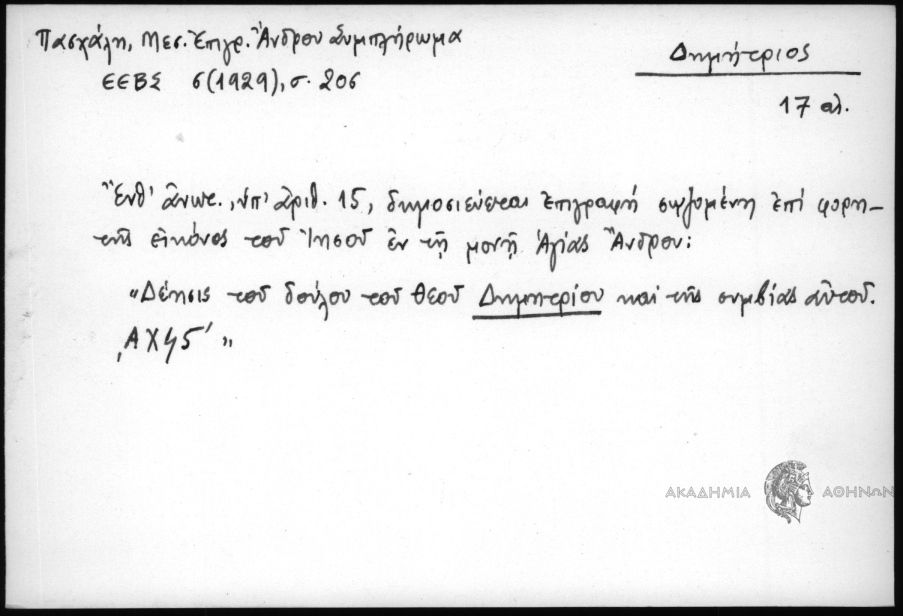 Πασχάλη, Μεσ. Ἐπιγρ. Ἄνδρου Συμπλήρωμα
Δημήτριος
ΕΕΒΣ 6(1929), σ. 206
17 αἰ.
Ἔνθ' ἄνωτ., ὑπ' ἀριθ. 15, δημοσιεύεται ἐπιγραφή σῳζομένη ἐπί φορη-
τῆς εἰκόνος τοῦ Ἰησοῦ ἐν τῇ μονῇ Ἁγίας Ἄνδρου:
"Δέησις τοῦ δούλου τοῦ θεοῦ Δημητρίου καί τῆς συμβίας αὐτοῦ.
͵ΑΧϟ5´"
ΑΚΑΔΗΜΙΑ ΑΘΗΝΩΝ